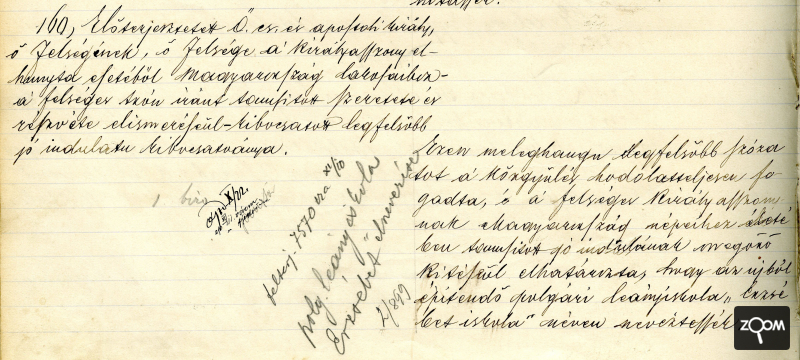 160, Előterjesztetett Ő cs. és apostoli király,
ő Felségének, ő Felsége a királyasszony el-
hunyta esetéből Magyarország lakosaihoz-
a felséges trón iránt tanusitott szeretete és
részvéte elismeréséül-kibocsátott legfelsőbb
jó indulatu kibocsátványa.
Ezen meleghangu legfelsőbb szóza
tot a közgyűlés hódolatteljesen fo-
gadta, s a felséges Királyasszony-
nak Magyarország népeihez életé
ben tanusitott jó indulatának megörö
kitéséül elhatározta, hogy az újból
épitendő polgári leányiskola „Erzsé
bet iskola" néven neveztessék
1 biro
felsőj. 7570 sza XI/10
polg. leány iskola
Erzsébet elnevezése
2/899
ZOOM